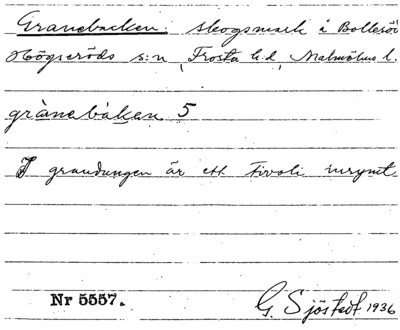 Granebacken: skogsmark i Bollesö
Högseröds s:n, Frosta h:d, Malmöhus l.
grànebàken 5
I grandungen är ett Tivoli inrymt
Nr 5557.
G. Sjöstedt 1936